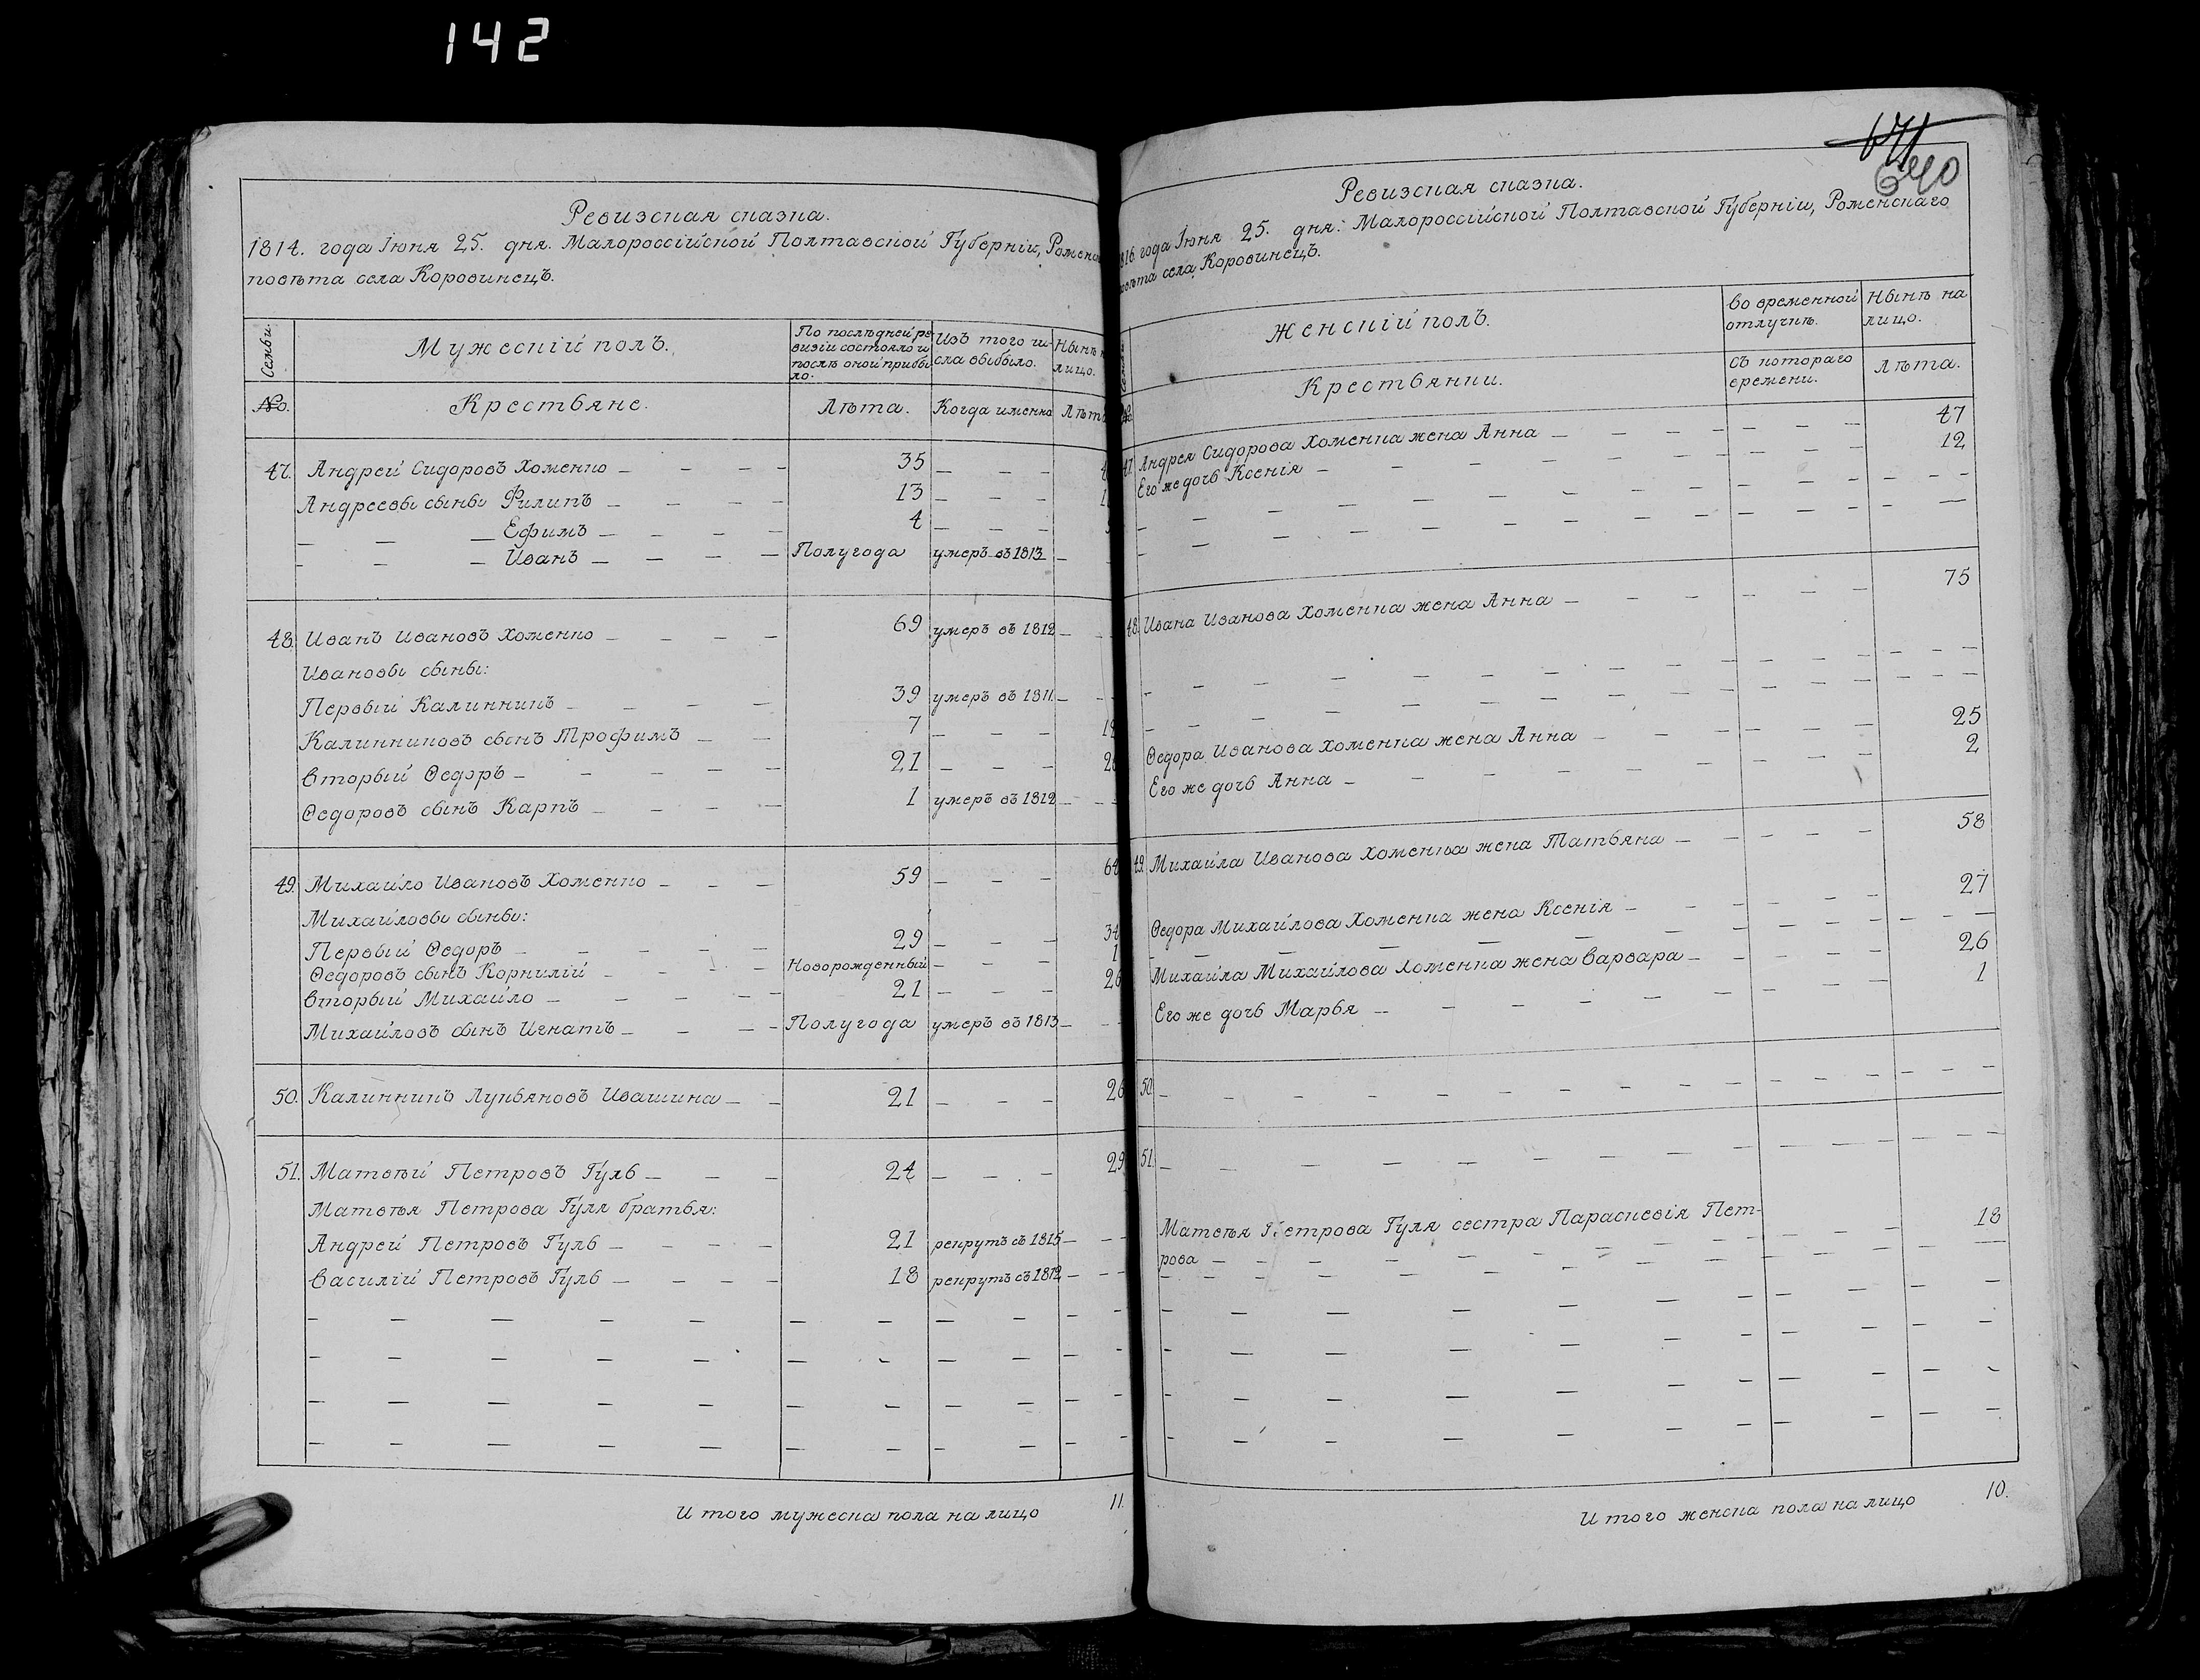 142
671
640
Ревизская сказка.
1814. года Іюня 25. дня. Малороссійской Полтавской Губерніи,
повѣта села Коровинецъ.
Семьи.
Мужескій полъ.
По послѣдней ре-
визіи состояло и
послѣ оной прибы-
ло.
Изъ того чи-
сла выбыло.
Нынѣ
лицо.
№.
Крестьяне.
Лѣта.
Когда именно
47. Андрей Сидоровъ Хоменко — — — — 35 — — —
Андреевы сыны Филипъ — — — — 13 — — —
— — — Ефимъ — — — — 4 — — —
— — — Иванъ — — — — Полугода умеръ въ 1813 —
48. Иванъ Ивановъ Хоменко — — — — 69 умеръ въ 1812 —
Ивановы сыны:
Первый Калинникъ — — — — 39 умеръ въ 1811. —
Калинниковъ сынъ Трофимъ — — 7 — — —
Вторый Ѳедоръ — — — — — 21 — — —
Ѳедоровъ сынъ Карпъ — — — — 1 умеръ въ 1812 —
49. Михайло Ивановъ Хоменко — — — 59 — — — 64
Михайловы сыны:
Первый Ѳедоръ — — — — — 29 — — — 34
Ѳедоровъ сынъ Корнилій — — — — Новорожденный — — — 1
Вторый Михайло — — — — — 21 — — — 26
Михайловъ сынъ Игнатъ — — — — Полугода умеръ въ 1813 —
50. Калинникъ Лукьяновъ Ивашина — — 21 — — — 26
51. Матвѣй Петровъ Гуль — — — 24 — — — 29
Матвѣя Петрова Гуля братья:
Андрей Петровъ Гуль — — — — 21 рекрутъ съ 1815 —
Василій Петровъ Гуль — — — — 18 рекрутъ съ 1812 —
И того мужеска пола на лицо 11.
Ревизская сказка.
года Іюня 25. дня. Малороссійской Полтавской Губерніи, Роменскаго
села Коровинецъ.
Женскій полъ.
Во временной
отлучкѣ.
Нынѣ на
лицо.
Крестьянки.
Съ котораго
времени.
Лѣта.
47. Андрея Сидорова Хоменка жена Анна — — — — 47
Его же дочь Ксенія — — — — 12
48. Ивана Иванова Хоменка жена Анна — — — — 75
Ѳедора Иванова Хоменка жена Анна — — — — 25
Его же дочь Анна — — — — 2
49. Михайла Иванова Хоменка жена Татьяна — — — — 58
Ѳедора Михайлова Хоменка жена Ксенія — — — — 27
Михайла Михайлова Хоменка жена Варвара — — — — 26
Его же дочь Марья — — — — 1
50. — — — —
51. — — — —
Матвѣя Петрова Гуля сестра Параскевія Пет-
рова — — — — 18
И того женска пола на лицо 10.